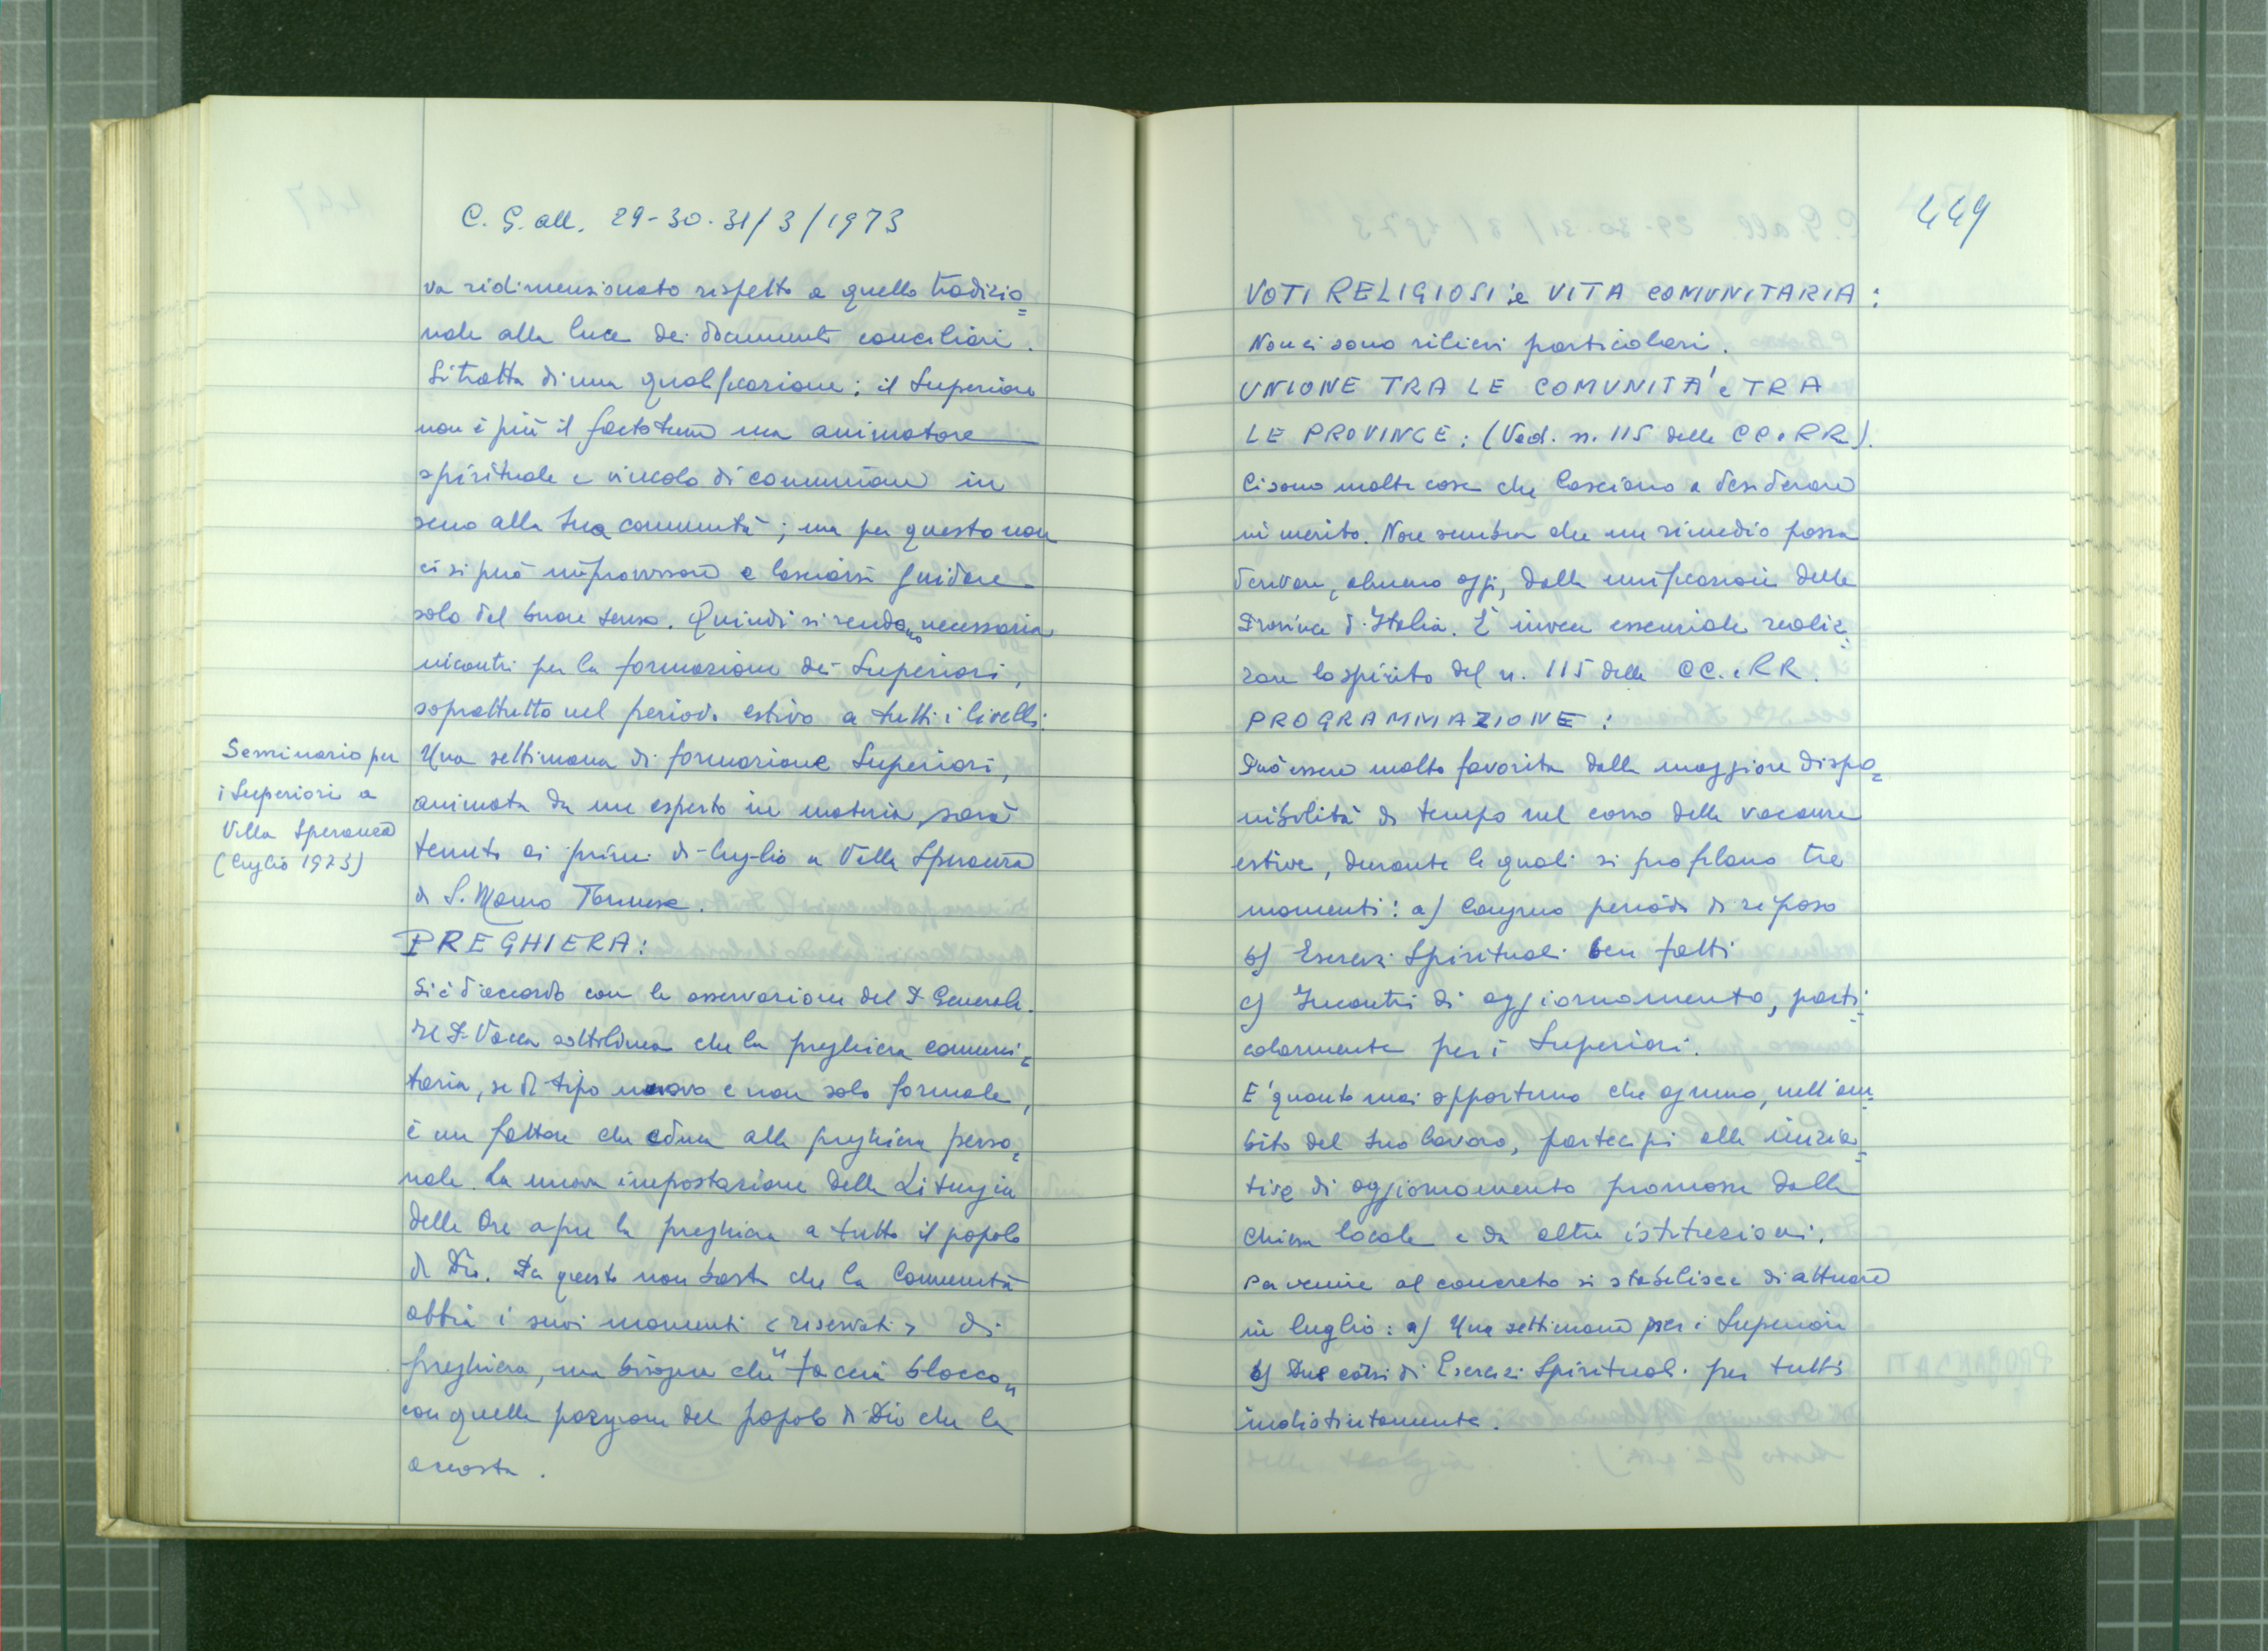 C. G. all. 29-30-31/3/1973
va ridimensionato rispetto a quello tradizio=
nale alla luce dei documenti conciliari.
Si tratta di una qualificazione: il Superiore
non è più il factotum ma animatore
spirituale e vincolo di comunione in
seno alla sua comunità; ma per questo non
ci si può improvvisare e lasciarsi guidare
solo dal buon senso. Quindi si rendono necessaria
incontri per la formazione dei Superiori,
soprattutto nel periodo estivo a tutti i livelli:
Seminario per
i Superiori a
Villa Speranza
(luglio 1973)
Una settimana di formazione Superiori,
animata da un esperto in materia, sarà
tenuta ai primi di luglio a Villa Speranza
di S. Mauro Torinese.
PREGHIERA:
Si è d'accordo con le osservazioni del P. Generale.
Il P. Vacca sottolinea che la preghiera comuni=
taria, se di tipo nuovo e non solo formale,
è un fattore che educa alla preghiera perso=
nale. La nuova impostazione della Liturgia
delle Ore apre la preghiera a tutto il popolo
di Dio. Per questo non basta che la Comunità
abbia i suoi momenti <riservati> di
preghiera, ma bisogna che "faccia blocco"
con quella porzione del popolo di Dio che la
accosta.
449
VOTI RELIGIOSI e VITA COMUNITARIA:
Non ci sono rilievi particolari.
UNIONE TRA LE COMUNITA' e TRA
LE PROVINCE: (Ved. n. 115 delle CC. e RR.).
Ci sono molte cose che lasciano a desiderare
in merito. Non sembra che un rimedio possa
derivare, almeno oggi, dalla unificazione delle
Province d'Italia. È invece essenziale realiz=
zare lo spirito del n. 115 delle CC. e RR.
PROGRAMMAZIONE:
Può essere molto favorita dalla maggiore dispo=
nibilità di tempo nel corso delle vacanze
estive, durante le quali si profilano tre
momenti: a) Congruo periodo di riposo
b) Esercizi Spirituali ben fatti
c) Incontri di aggiornamento, parti=
colarmente per i Superiori.
E' quanto mai opportuno che ognuno, nell'am=
bito del suo lavoro, partecipi alle inizia=
tive di aggiornamento promosse dalla
Chiesa locale e da altre istituzioni.
Per venire al concreto si stabilisce di attuare
in luglio: a) Una settimana per i Superiori
b) Due corsi di Esercizi Spirituali per tutti
indistintamente.